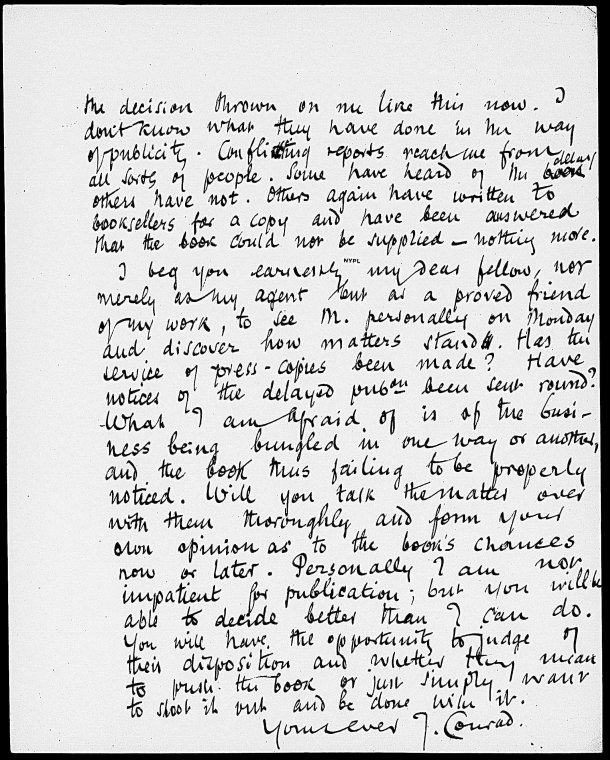 the decision thrown on me like this now. I
don't know what they have done in the way
of publicity. Conflicting reports reach me from
all sorts of people. Some have heard of the delay
others have not. Others again have written to
booksellers for a copy and have been answered
that the book could not be supplied — nothing more.
NYPL
I beg you earnestly my dear fellow, not
merely as my agent but as a proved friend
of my work, to see M. personally on Monday
and discover how matters stand. Has the
service of press-copies been made? Have
notices of the delayed pubon been sent round?
What I am afraid of is of the busi-
ness being bungled in one way or another,
and the book thus failing to be properly
noticed. Will you talk the matter over
with them thoroughly and form your
own opinion as to the book's chances
now or later. Personally I am not
impatient for publication; but you will be
able to decide better than I can do.
You will have the opportunity to judge of
their disposition and whether they mean
to push the book or just simply want
to shoot it out and be done with it.
Yours ever J. Conrad.